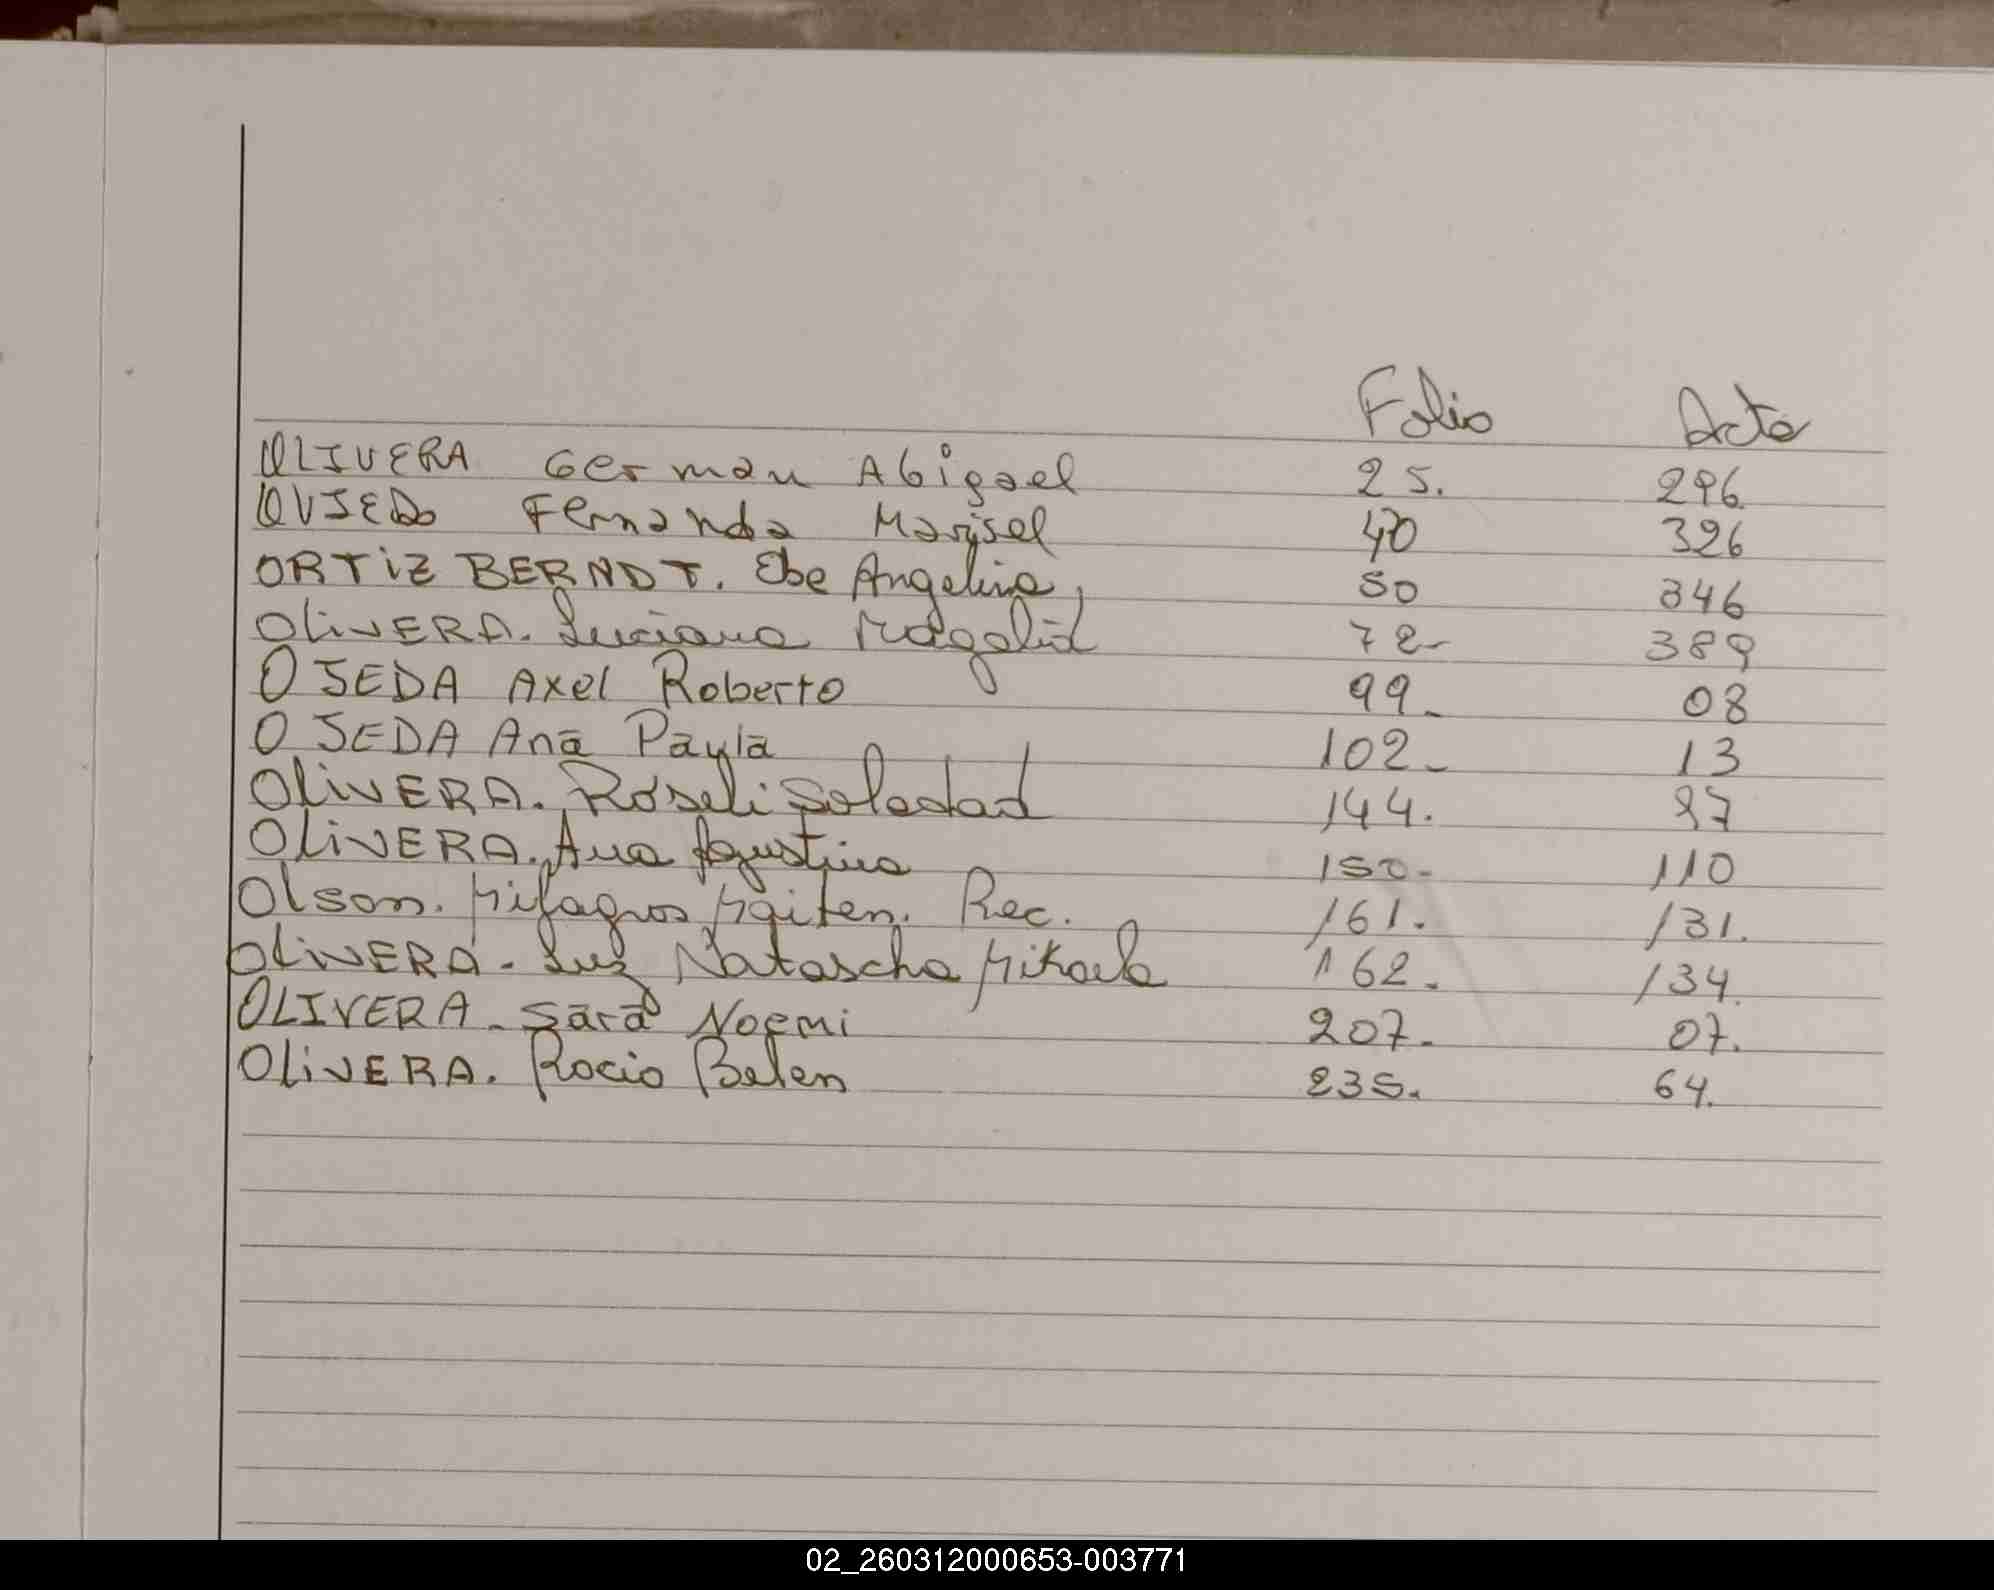 Folio Acta
OLIVERA German Abigael 25. 296
OVIEDO Fernanda Marisel 40 326
ORTIZ BERNDT. Ebe Angelina 50 346
OLIVERA. Luciana Magalid 72- 389
OJEDA Axel Roberto 99- 08
OJEDA Ana Paula 102- 13
OLIVERA. Roseli Soledad 144. 97
OLIVERA. Ana Agustina 150- 110
Olson. Milagros Maiten. Rec. 161. 131.
OLIVERA- Luz Natascha Mikaela 162. 134.
OLIVERA- Sara Noemi 207- 07.
OLIVERA. Rocio Belen 235. 64.
02_260312000653-003771